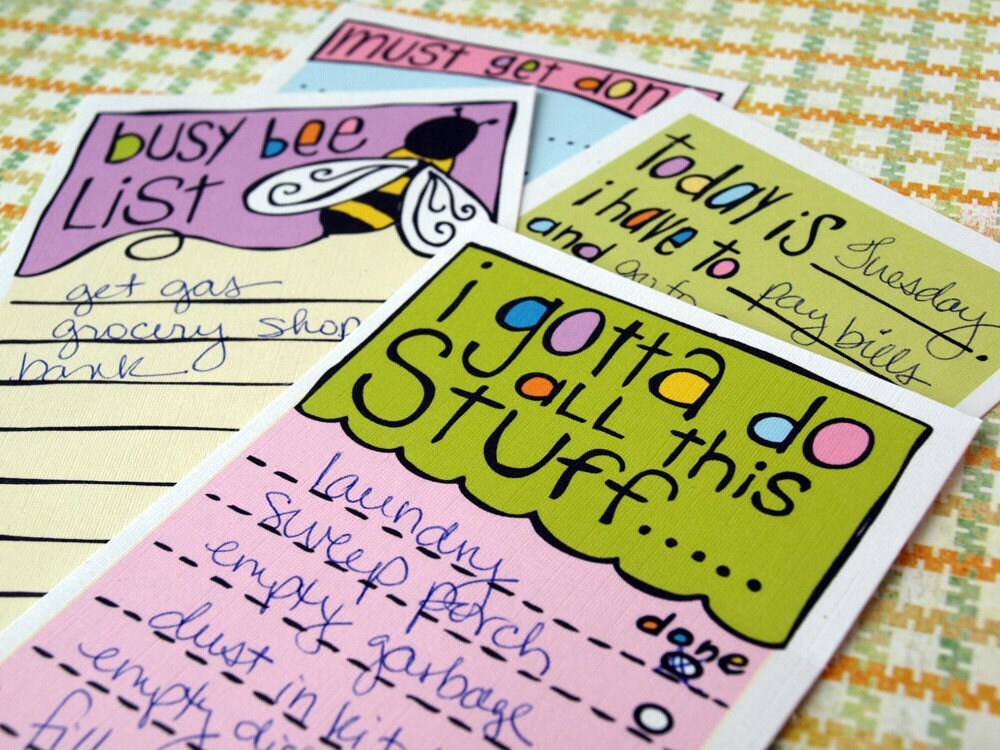 must get don
busy bee
List
get gas
grocery shop
bank
today is Tuesday.
i have to pay bills
and go to
i gotta do
all this
Stuff....
done
laundry
sweep porch
empty garbage
dust in kit
empty
fill